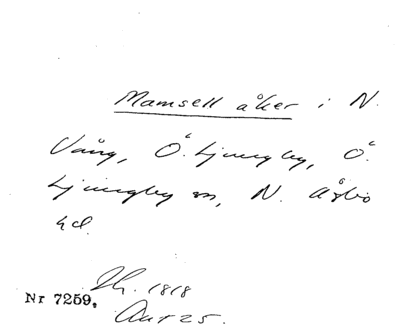 Mamsell åker i N.
Vång, Ö. Ljungby, Ö.
Ljungby sn, N. Åsbo
hd.
1818
Nr 7259,
Akt 25.